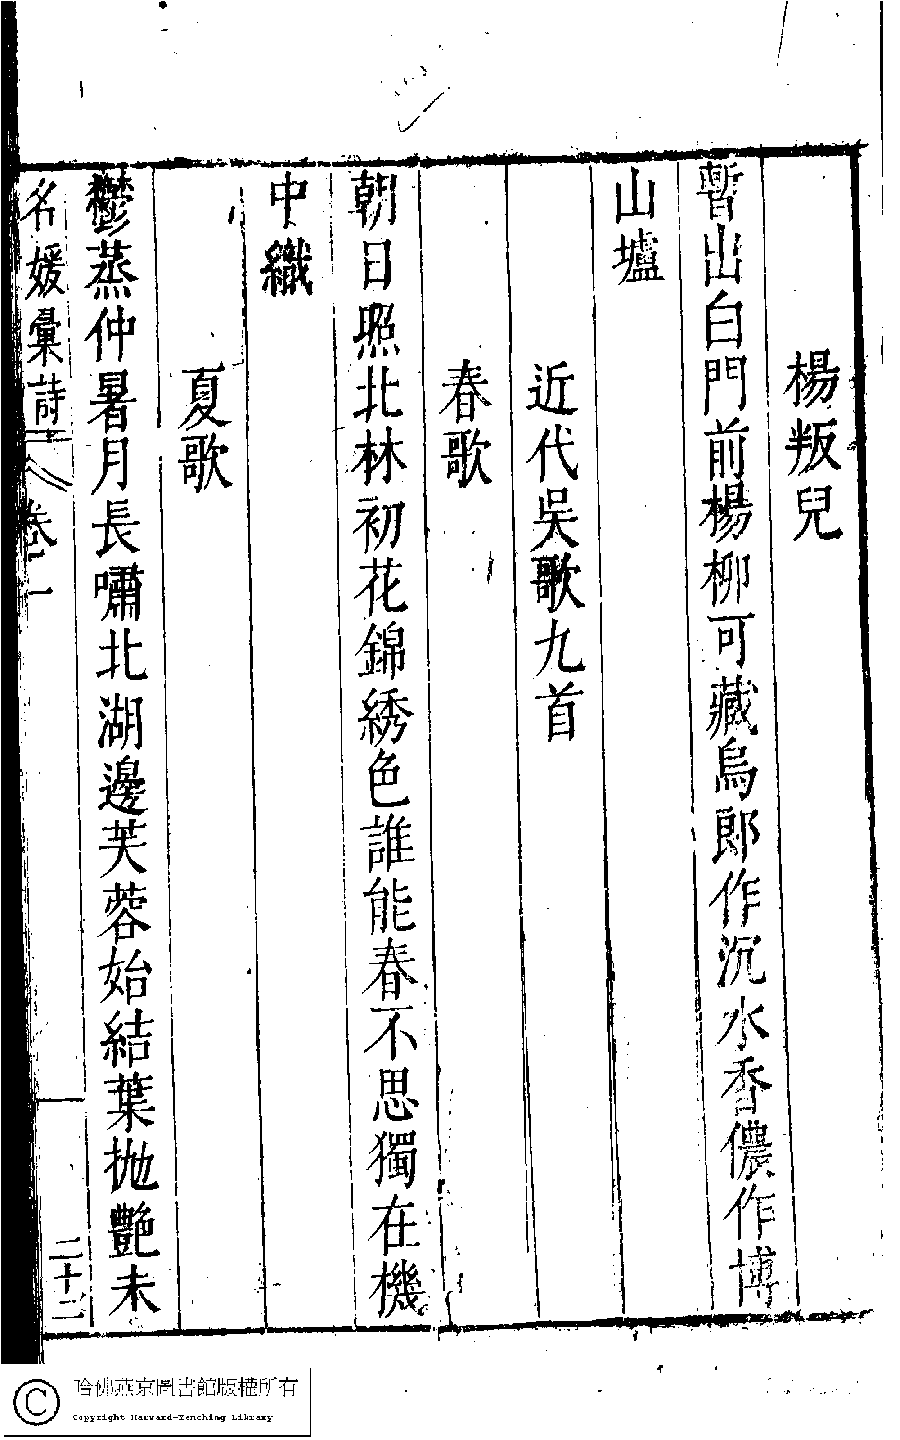 楊叛兒
暫出白門前楊柳可藏烏郎作沉水香儂作博
山壚
近代吳歌九首
春歌
朝日照北林初花錦綉色誰能春不思獨在機
中織
夏歌
鬱蒸仲暑月長嘯北湖邊芙蓉始結葉拋艷未
名媛彙詩 卷一 二十二
哈佛燕京圖書館版權所有
Copyright Harvard-Yenching Library